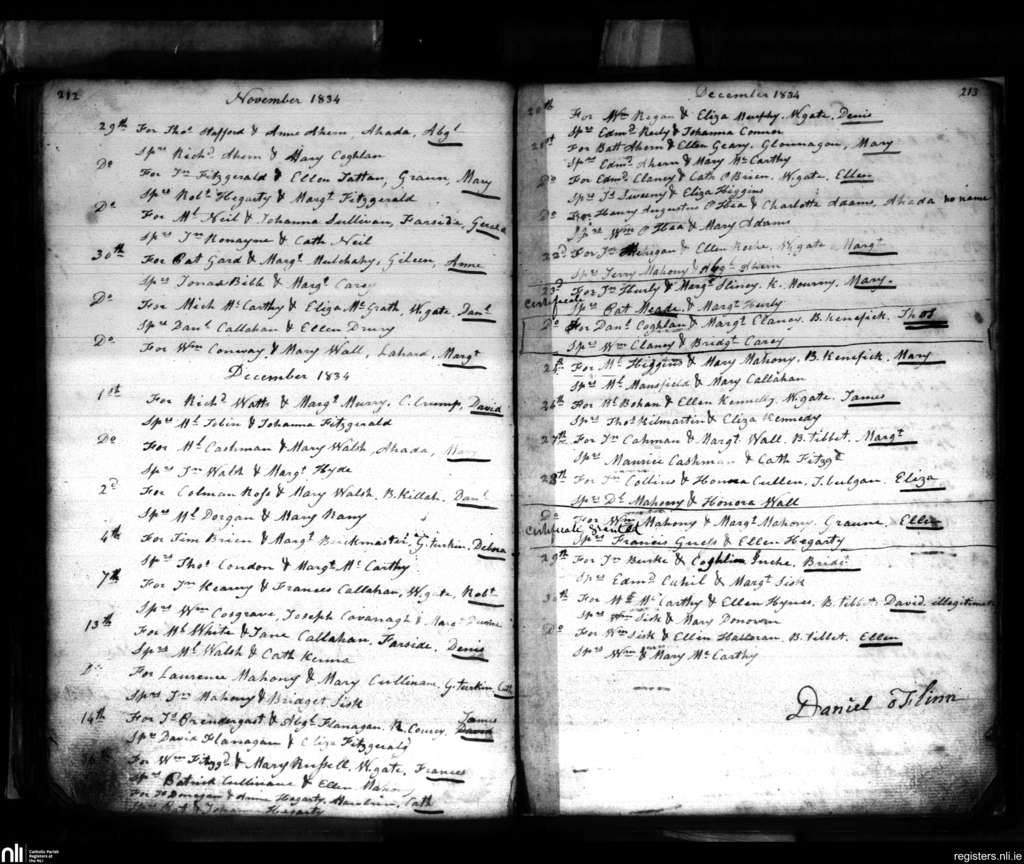 212
November 1834
29th For Thos Stafford & Anne Ahern, Ahada, Abgl
Sprs Richd Ahern & Mary Coghlan
Do For Jn Fitzgerald & Ellen Tattan, Graun, Mary
Sprs Robt Hegarty & Margt Fitzgerald
Do For Ml Neil & Johanna Sullivan, Farside,
Sprs Jn Ronayne & Cath Neil
30th For Pat Gard & Margt Mulchahy, Gileen, Anne
Sprs Jonas Bible & Margt Carey
Do For Mich McCarthy & Eliza McGrath, W.gate, Danl
Sprs Danl Callahan & Ellen Drury
Do For Wm Conway & Mary Wall, Lahard, Margt
December 1834
1st For Richd Watts & Margt Murry, C. Crump, David
Sprs Ml Tobin & Johanna Fitzgerald
Do For Ml Cashman & Mary Walsh, Ahada, Mary
Sprs Jn Walsh & Margt Hyde
2d For Colman Ross & Mary Walsh, B.Killah, Danl
Sprs Ml Dorgan & Mary Barry
4th For Tim Brien & Margt Buckmaster, G.turkin, Debora
Sprs Thos Condon & Margt McCarthy
7th For Jn Kearny & Frances Callahan, W.gate, Robt
Sprs Wm Cosgrave, Joseph Cavanagh & Margt
13th For Ml White & Jane Callahan, Farside, Denis
Sprs Ml Walsh & Cath Kenna
Do For Laurence Mahony & Mary Cullinan, G.turkin, Cath
Sprs Jn Mahony & Bridget Sisk
14th For Js Prendergast & Abgl Flanagan, R. Coursy, James David
Sprs David Flanagan & Eliza Fitzgerald
16th For Wm Fitzgd & Mary Russell, W.gate, Frances
Sprs Patrick Cullinane & Ellen Mahony
For Donegan & Anne Hegarty, Cath
Sprs Pat & Johanna Hegarty
213
December 1834
20th For Wm Regan & Eliza Murphy, W.gate, Denis
Sprs Edmd Reily & Johanna Connor
21st For Batt Ahern & Ellen Geary, Glounagon, Mary
Sprs Edmd Ahern & Mary McCarthy
Do For Edmd Clancy & Cath OBrien, W.gate, Ellen
Sprs Js Sweeny & Eliza Higgins
Do For Henry Augustus O'Hea & Charlotte Adams, Ahada no name
Sprs Wm O'Hea & Mary Adams
22d For Jn Mehigan & Ellen Roche, W.gate Margt
Sprs Jerry Mahony & Abgl Ahern
23d For Jn Hurly & Margt Sliney, K. Mourny, Mary.
certificate
Sprs Pat Meade, & Margt Hurly
Do For Danl Coghlan & Margt Clancy, B.Kenefick, Thos
Sprs Wm Clancy & Bridgt Carey
24th For Ml Higgins & Mary Mahony, B.Kenefick, Mary
Sprs Ml Mansfield & Mary Callahan
26th For Ml Bohan & Ellen Kennedy, W.gate, James
Sprs Thos Kilmartin & Eliza Kennedy
27th For Jn Cahman & Margt Wall, B.tibbet, Margt
Sprs Maurice Cashman & Cath Fitzgd
28th For Jn Collins & Honora Cullen, T.bulgan, Eliza
Sprs Ds Mahony & Honora Wall
Do For Wm Mahony & Margt Mahony, Graune, Ellen
certificate granted
Sprs Francis Guess & Ellen Hegarty
29th For Jn Burke & Coghlan Inche, Bridgt
Sprs Edmd Cahil & Margt Sisk
30th For Ml McCarthy & Ellen Hynes, B.tibbet, David illegitimate
Sprs Wm Sisk & Mary Donovan
Do For Wm Sisk & Ellen Halloran, B.tibbet, Ellen
Sprs Wm & Mary McCarthy
Daniel OFlinn
nli Catholic Parish
Registers at
the NLI
registers.nli.ie